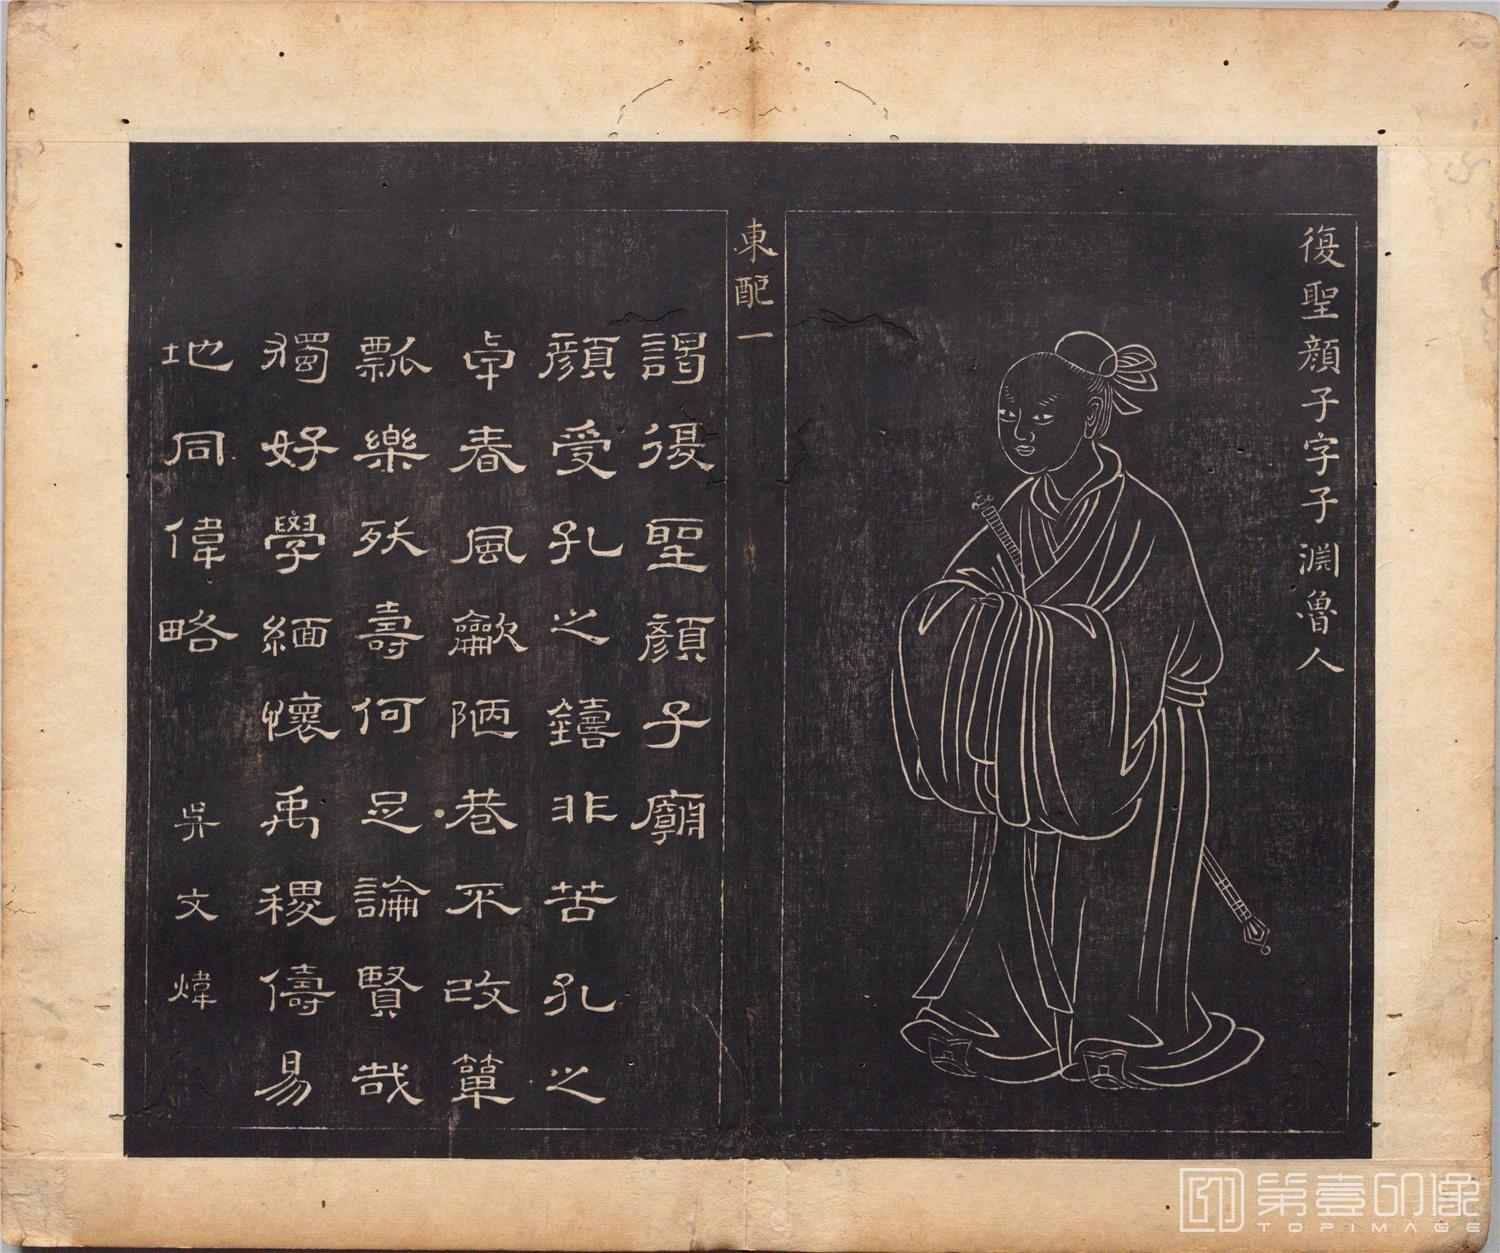 復聖顏子字子淵魯人
東配一
謁復聖顏子廟
顏受孔之鑄非苦孔之
卓春風龡陋巷不改簞
瓢樂殀壽何足論賢哉
獨好學緬懷禹稷儔易
地同偉略 吳文煒
第壹印像
TOPIMAGE